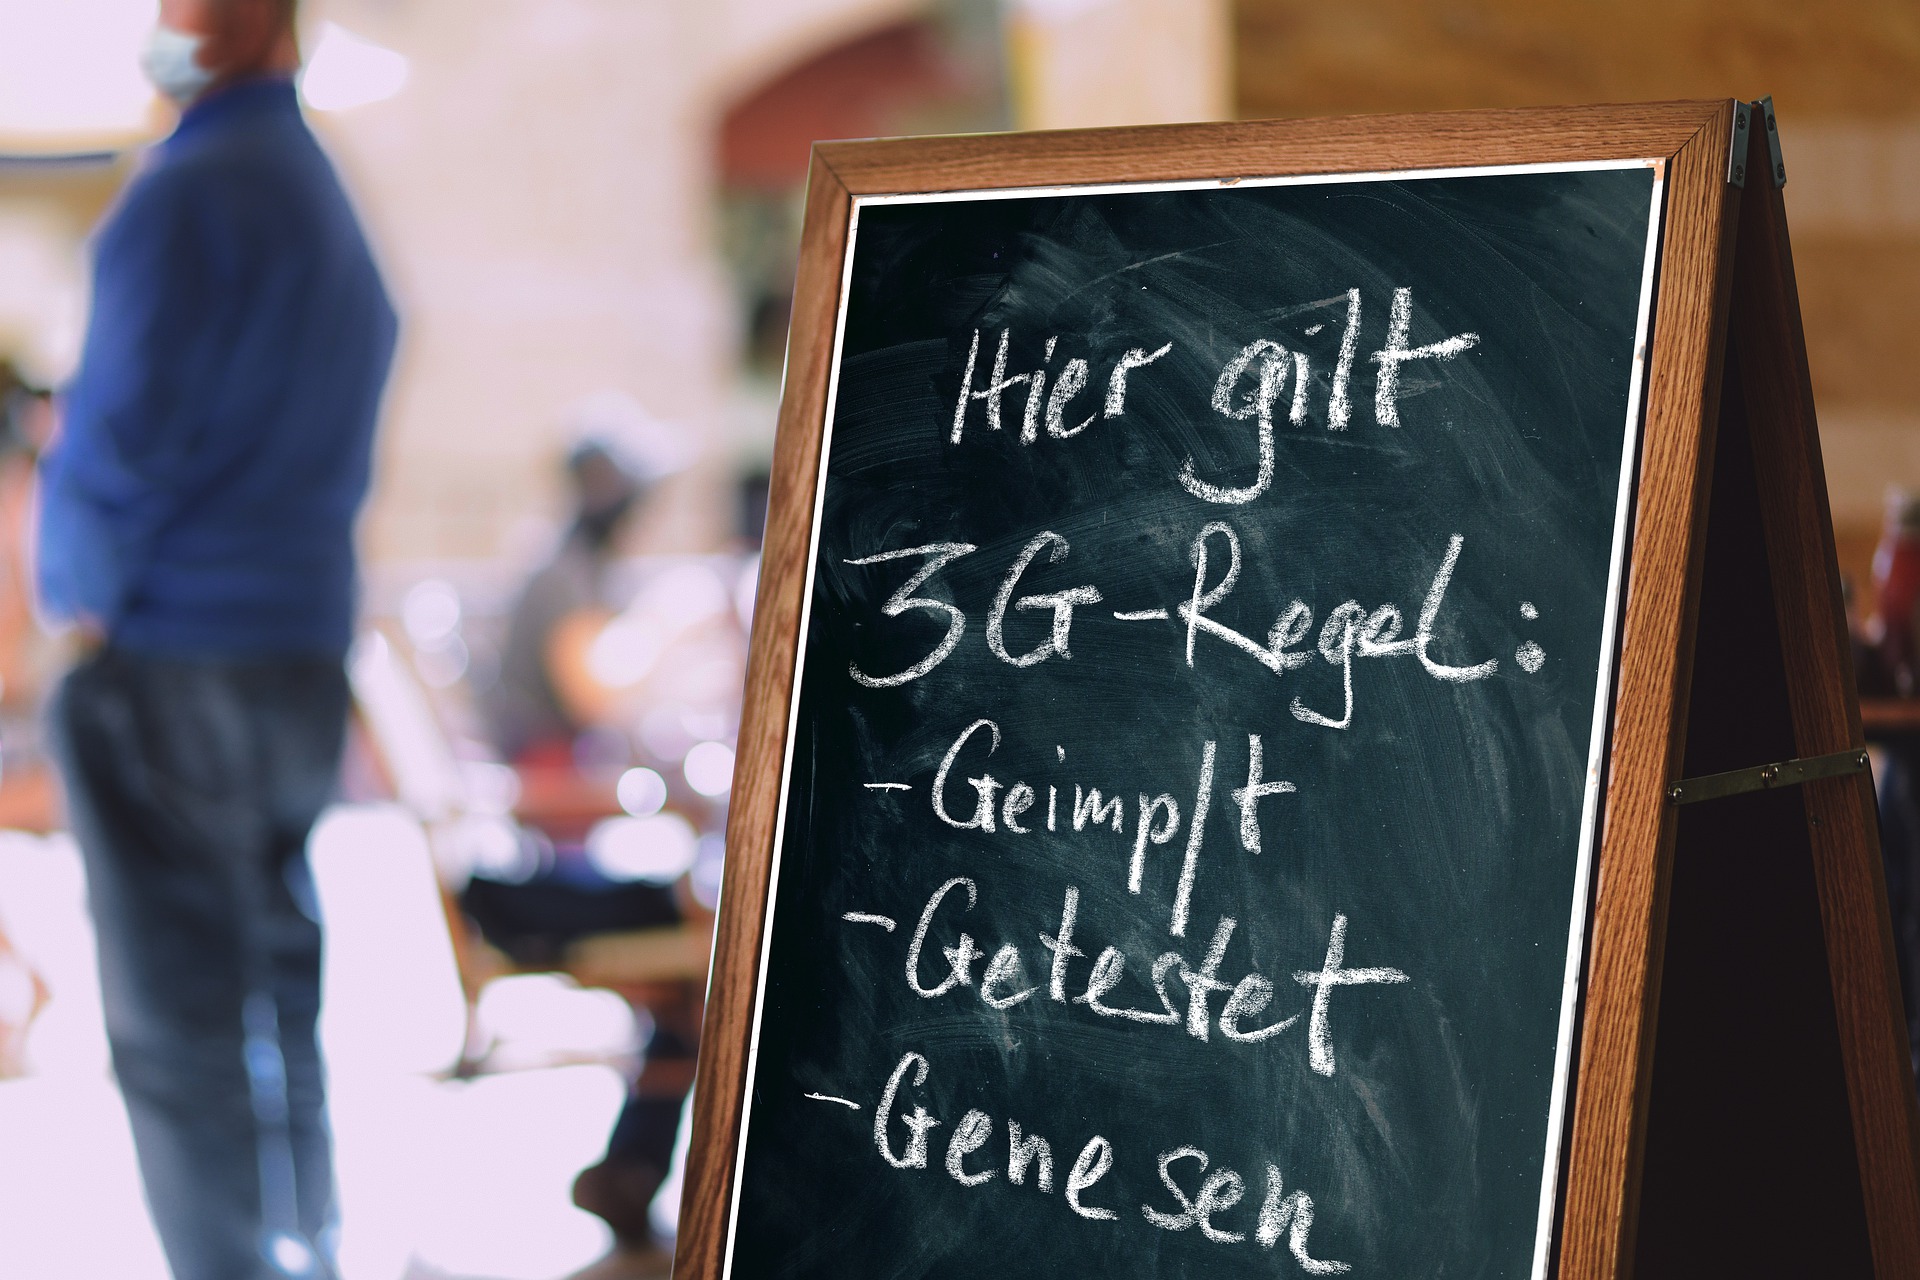 Hier gilt
3G-Regel:
- Geimpft
- Getestet
- Genesen